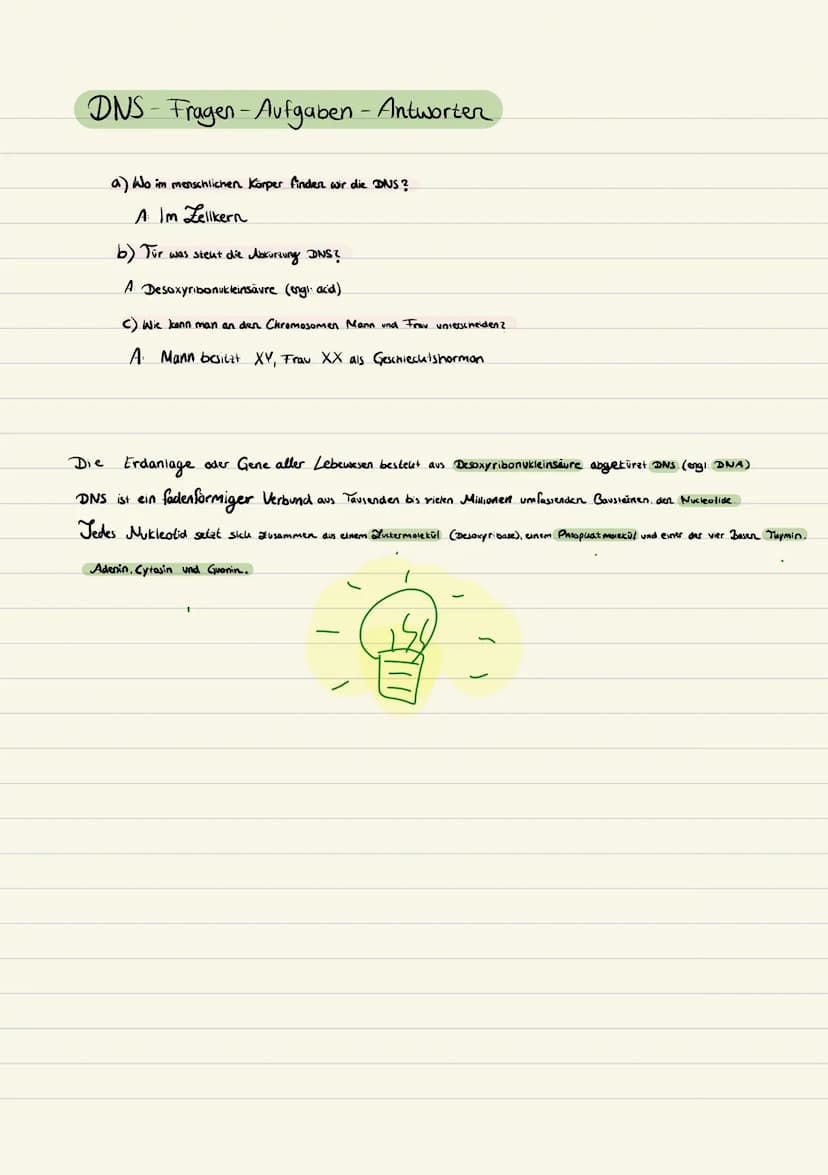 DNS - Fragen - Aufgaben - Antworten
a) Wo im menschlichen Körper finden wir die DNS?
A: Im Zellkern
b) Für was steht die Abkürzung DNS?
A Desoxyribonukleinsäure (engl. acid)
c) Wie kann man an den Chromosomen Mann und Frau unterscheiden?
A: Mann besitzt XY, Frau XX als Geschlechtshormon
Die Erdanlage oder Gene aller Lebewesen besteht aus Desoxyribonukleinsäure abgekürzt DNS (engl. DNA)
DNS ist ein fadenförmiger Verbund aus Tausenden bis vielen Millionen umfassenden Bausteinen, den Nucleotide
Jedes Nukleotid setzt sich zusammen aus einem Zuckermolekül (Desoxyribose), einem Phosphatmolekül und einer der vier Basen Thymin,
Adenin, Cytosin und Guanin.